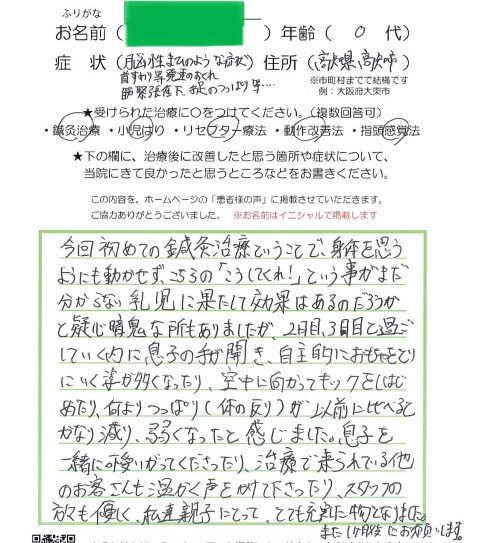 ふりがな
お名前（　　　）年齢（ 0 代）
症　状（脳性まひのような症状）住所（高知県高知市）
首すわり等発達のおくれ
筋緊張低下、足のつっぱり等…
※市町村までで結構です
例：大阪府大東市
★受けられた治療に○をつけてください。（複数回答可）
・鍼灸治療 ・小児はり ・リセプター療法 ・動作改善法 ・指頭感覚法
★下の欄に、治療後に改善したと思う箇所や症状について、
当院にきて良かったと思うところなどをお書きください。
この内容を、ホームページの「患者様の声」に掲載させていただきます。
ご協力ありがとうございました。 ※お名前はイニシャルで掲載します
今回初めての鍼灸治療ということで、身体を思う
ようにも動かせず、こちらの「こうしてくれ！」という事がまだ
分からない乳児に果たして効果はあるのだろうか
と疑心暗鬼な所もありましたが、2日目、3日目と過ご
していく内に息子の手が開き、自主的におもちゃをとり
にいく姿が多くなったり、空中に向かってキックをしはじ
めたり、何よりつっぱり（体の反り）が以前に比べると
かなり減り、弱くなったと感じました。息子を
一緒に可愛いがってくださったり、治療で来られている他
のお客さんも温かく声をかけて下さったり、スタッフの
方々も優しく、私達親子にとって、とても充実した物となりました。
また1ヶ月後にお願いします。